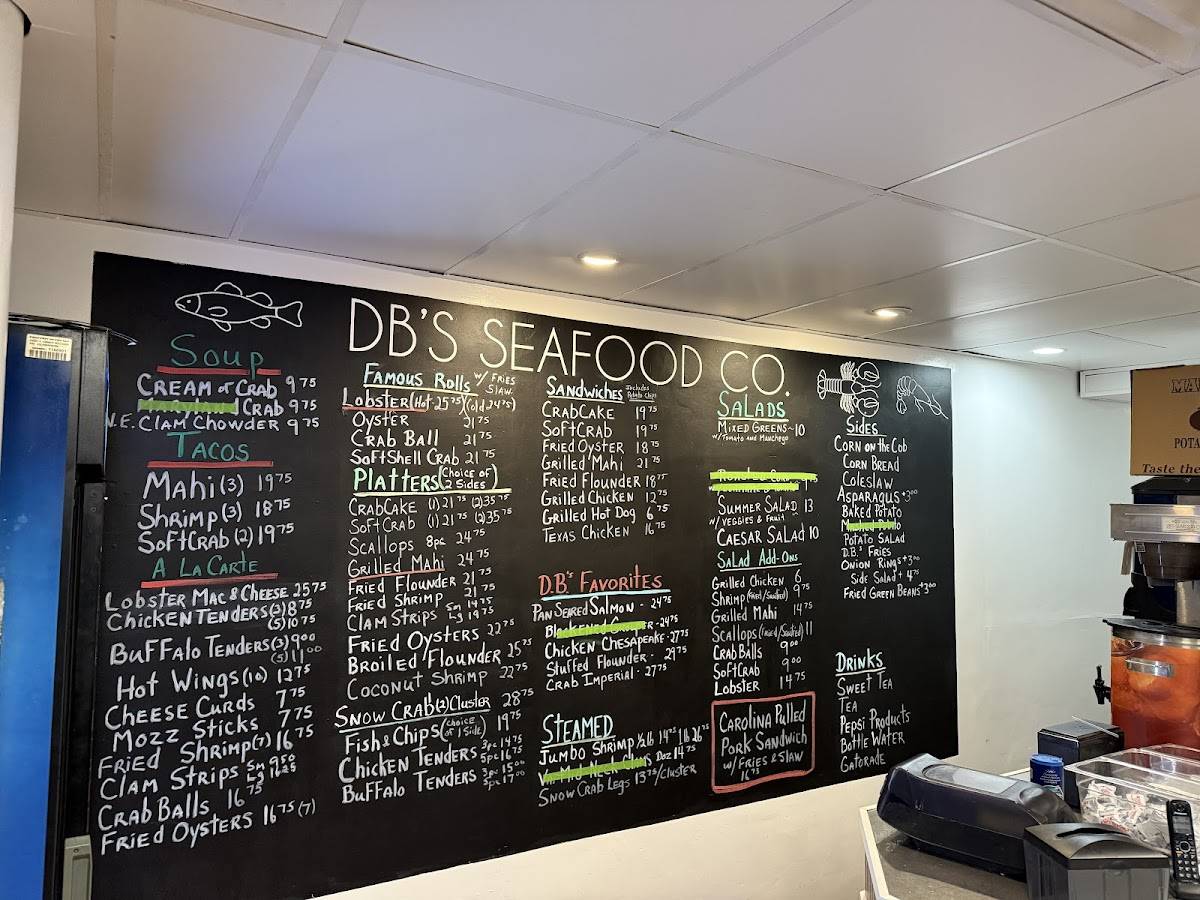 DB'S SEAFOOD CO.
SOUP
CREAM OF CRAB 9 75
CRAB 9 75
N.E. CLAM CHOWDER 9 75
TACOS
MAHI (3) 19 75
SHRIMP (3) 18 75
SOFTCRAB (2) 19 75
A LA CARTE
LOBSTER MAC & CHEESE 25 75
CHICKEN TENDERS (3) 8 75
(5) 10 75
BUFFALO TENDERS (3) 9 00
(5) 11 00
HOT WINGS (10) 12 75
CHEESE CURDS 7 75
MOZZ STICKS 7 75
FRIED SHRIMP (7) 16 75
CLAM STRIPS Sm 9 50
Lg 16 25
CRAB BALLS 16 75
FRIED OYSTERS 16 75 (7)
FAMOUS ROLLS w/ FRIES
SLAW
LOBSTER (HOT 25 75) (Cold 24 75)
OYSTER 21 75
CRAB BALL 21 75
SOFTSHELL CRAB 21 75
PLATTERS (CHOICE OF
2 SIDES)
CRABCAKE (1) 21 75 (2) 35 75
SOFTCRAB (1) 21 75 (2) 35 75
SCALLOPS 8pc 24 75
GRILLED MAHI 24 75
FRIED FLOUNDER 21 75
FRIED SHRIMP 21 75
CLAM STRIPS Sm 14 75
Lg 19 75
FRIED OYSTERS 22 75
BROILED FLOUNDER 25 75
COCONUT SHRIMP 22 75
SNOW CRAB (2) CLUSTER 28 75
FISH & CHIPS (CHOICE
OF 1 SIDE) 19 75
CHICKEN TENDERS 3pc 14 75
5pc 16 75
BUFFALO TENDERS 3pc 15 00
5pc 17 00
SANDWICHES Includes
Potato Chips
CRABCAKE 19 75
SOFTCRAB 19 75
FRIED OYSTER 18 75
GRILLED MAHI 21 75
FRIED FLOUNDER 18 75
GRILLED CHICKEN 12 75
GRILLED HOT DOG 6 75
TEXAS CHICKEN 16 75
D.B.'S FAVORITES
PAN SEARED SALMON - 24 75
BLACKENED GROUPER - 24 75
CHICKEN CHESAPEAKE - 27 75
STUFFED FLOUNDER - 29 75
CRAB IMPERIAL - 27 75
STEAMED
JUMBO SHRIMP ½ lb 14 75 1 lb 26 75
DOZ 14 75
SNOW CRAB LEGS 13 75/CLUSTER
SALADS
MIXED GREENS - 10
w/ TOMATO AND MANCHEGO
SUMMER SALAD 13
w/ VEGGIES & FRUIT
CAESAR SALAD 10
SALAD ADD-ONS
GRILLED CHICKEN 6
SHRIMP (Fried/Sautéed) 9 75
GRILLED MAHI 14 75
SCALLOPS (Fried/Sautéed) 11
CRAB BALLS 9 00
SOFTCRAB 9 00
LOBSTER 14 75
CAROLINA PULLED
PORK SANDWICH
w/ FRIES & SLAW
16 75
SIDES
CORN ON THE COB
CORN BREAD
COLESLAW
ASPARAGUS +3 00
BAKED POTATO
MASHED POTATO
POTATO SALAD
D.B.'S FRIES
ONION RINGS +3 00
SIDE SALAD + 4 75
FRIED GREEN BEANS +3 00
DRINKS
SWEET TEA
TEA
PEPSI PRODUCTS
BOTTLE WATER
GATORADE
POTA
Taste the